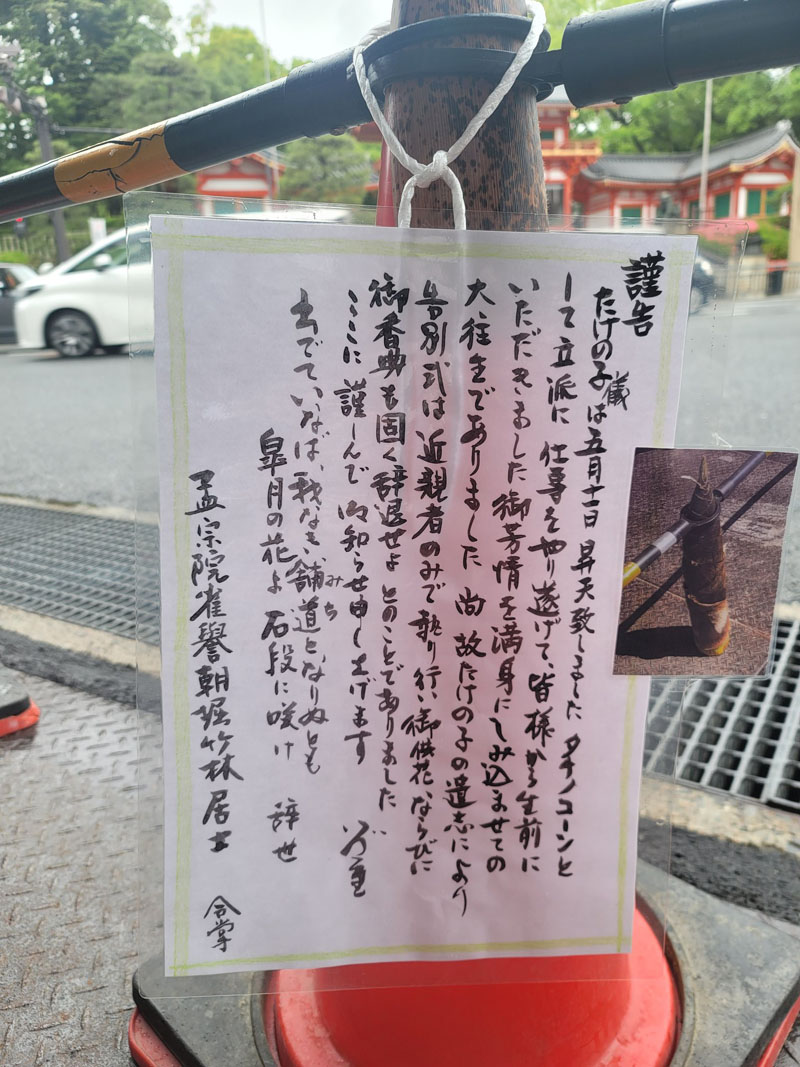 謹告
たけの子儀は五月十一日 昇天致しました タケノコーンと
して立派に仕事をやり遂げて、皆様から生前に
いただきました御芳情を満身にしみ込ませての
大往生でありました 尚 故たけの子の遺志により
告別式は近親者のみで執り行い御供花ならびに
御香典も固く辞退せよ とのことでありました
ここに 謹んで お知らせ申し上げます
出でていなば、我なき舗道となりぬとも
みち
皐月の花よ 石段に咲け 辞世
孟宗院雀誉朝堀竹林居士
合掌